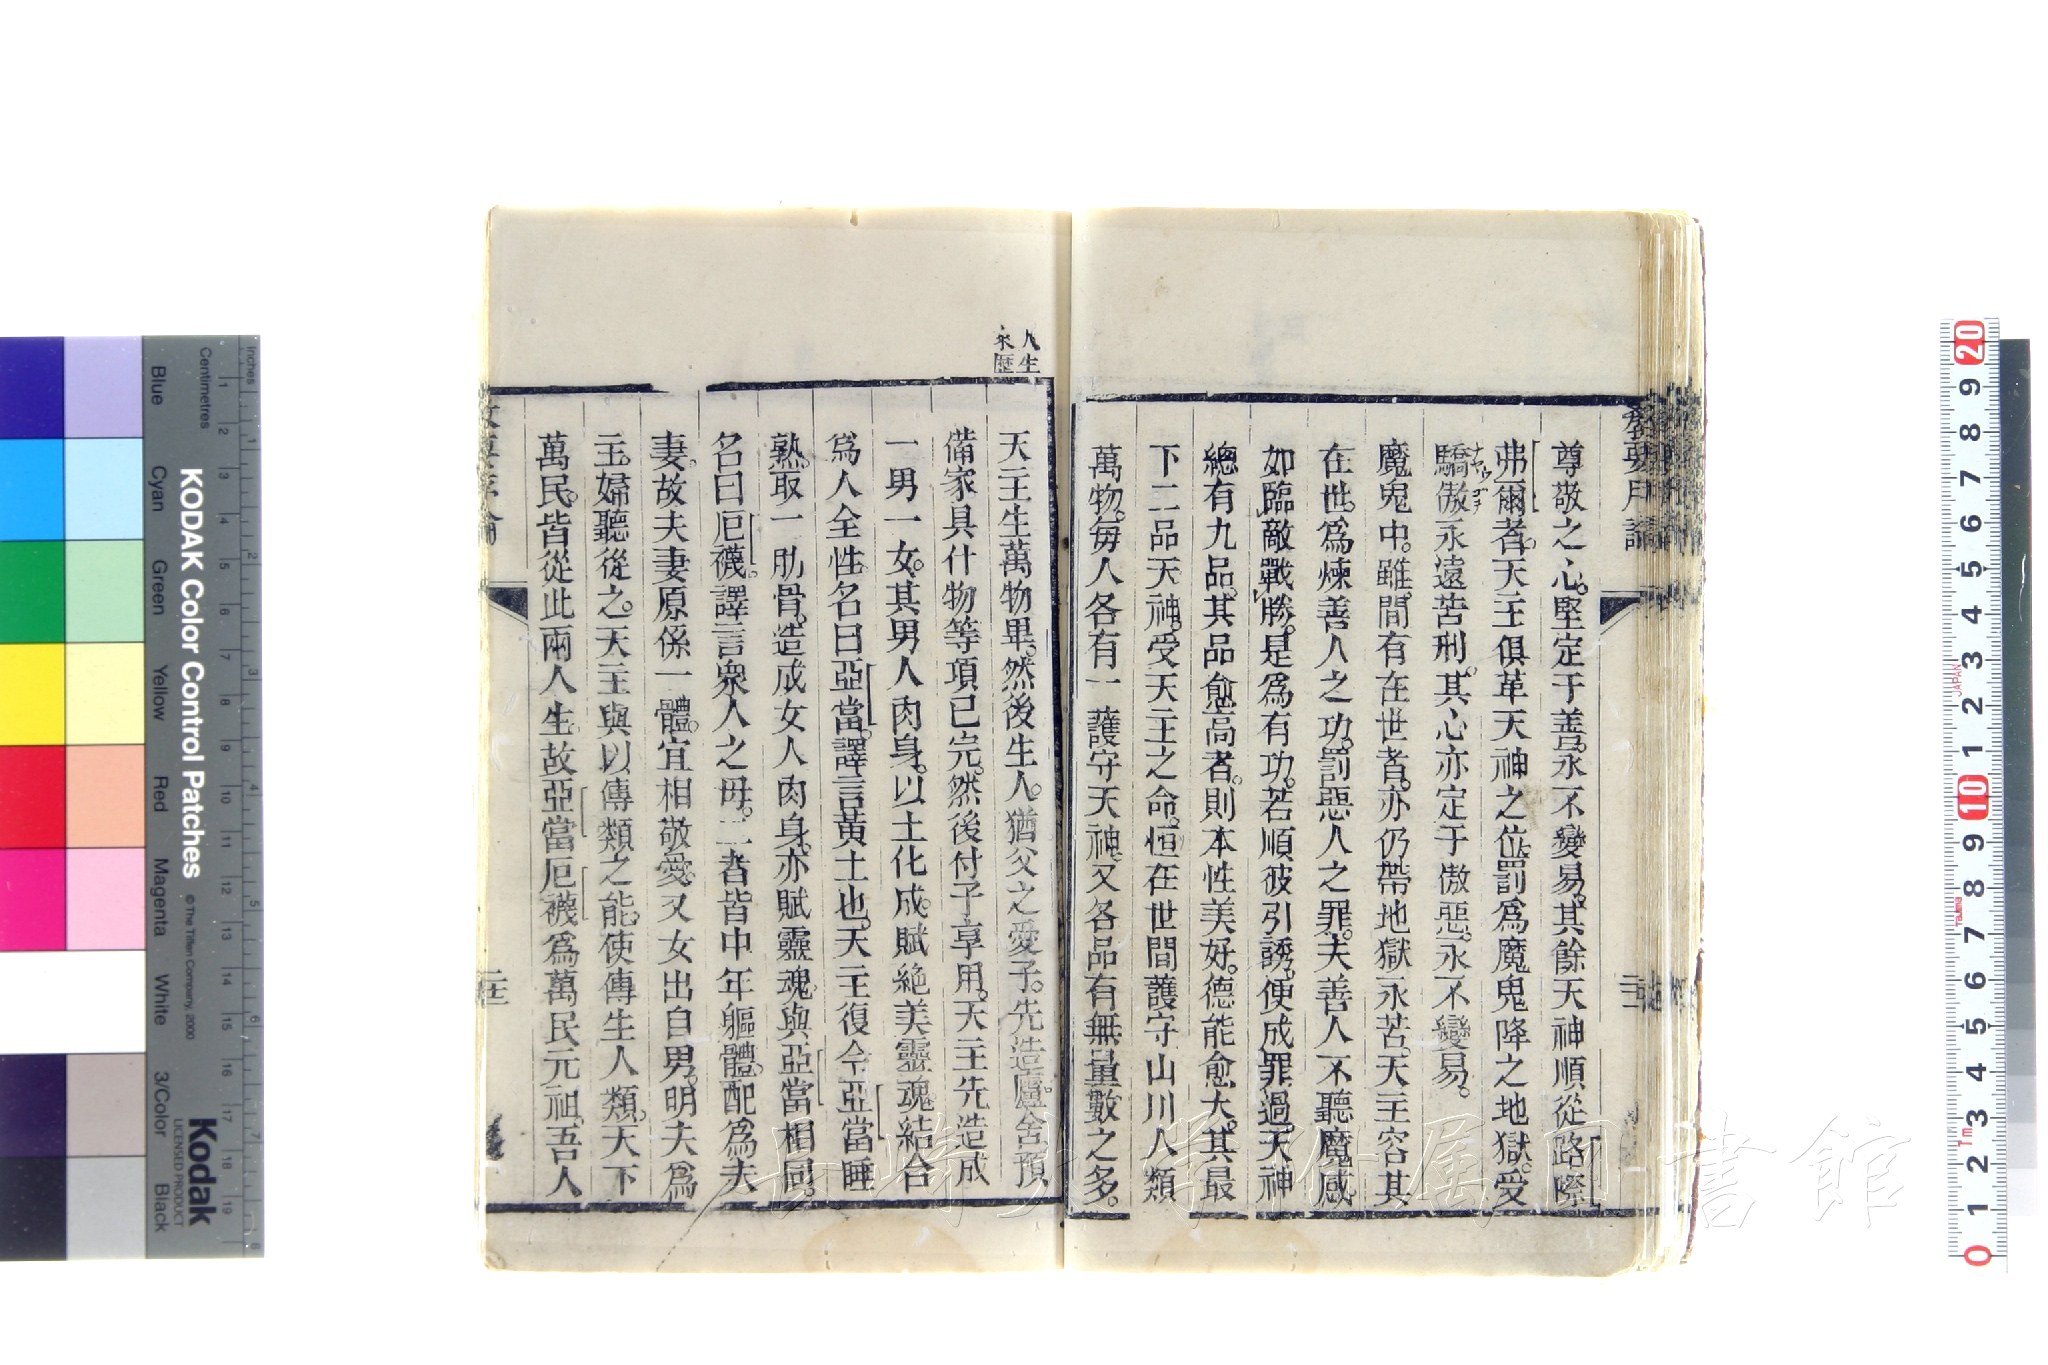 尊敬之心。堅定于善。永不變易。其餘天神順從路際
弗爾者。天主俱革天神之位。罰爲魔鬼降之地獄。受
驕傲永遠苦刑。其心亦定于傲惡。永不變易。
魔鬼中。雖間有在世者。亦仍帶地獄永苦。天主容其
在世。爲煉善人之功。罰惡人之罪。夫善人不聽魔惑。
如臨敵戰勝。是爲有功。若順彼引誘。便成罪過。天神
總有九品。其品愈高者。則本性美好。德能愈大。其最
下二品天神。受天主之命。恒在世間護守山川人類
萬物。每人各有一護守天神。又各品有無量數之多。
人生
來歷
天主生萬物畢。然後生人。猶父之愛子。先造廬舍預
備家具什物等項已完。然後付子享用。天主先造成
一男一女。其男人肉身。以土化成。賦絶美靈魂結合
爲人全性。名曰亞當。譯言黃土也。天主復令亞當睡
熟。取一肋骨。造成女人肉身。亦賦靈魂。與亞當相同。
名曰厄襪。譯言衆人之母。二者皆中年軀體。配爲夫
妻。故夫妻原係一體。宜相敬愛。又女出自男。明夫爲
主。婦聽從之。天主與以傳類之能。使傳生人類。天下
萬民。皆從此兩人生。故亞當厄襪爲萬民元祖。吾人
KODAK Color Control Patches
© The Tiffen Company, 2000
Kodak
LICENSED PRODUCT
Inches
Centimetres
Blue
Cyan
Green
Yellow
Red
Magenta
White
3/Color
Black
JAPAN
館